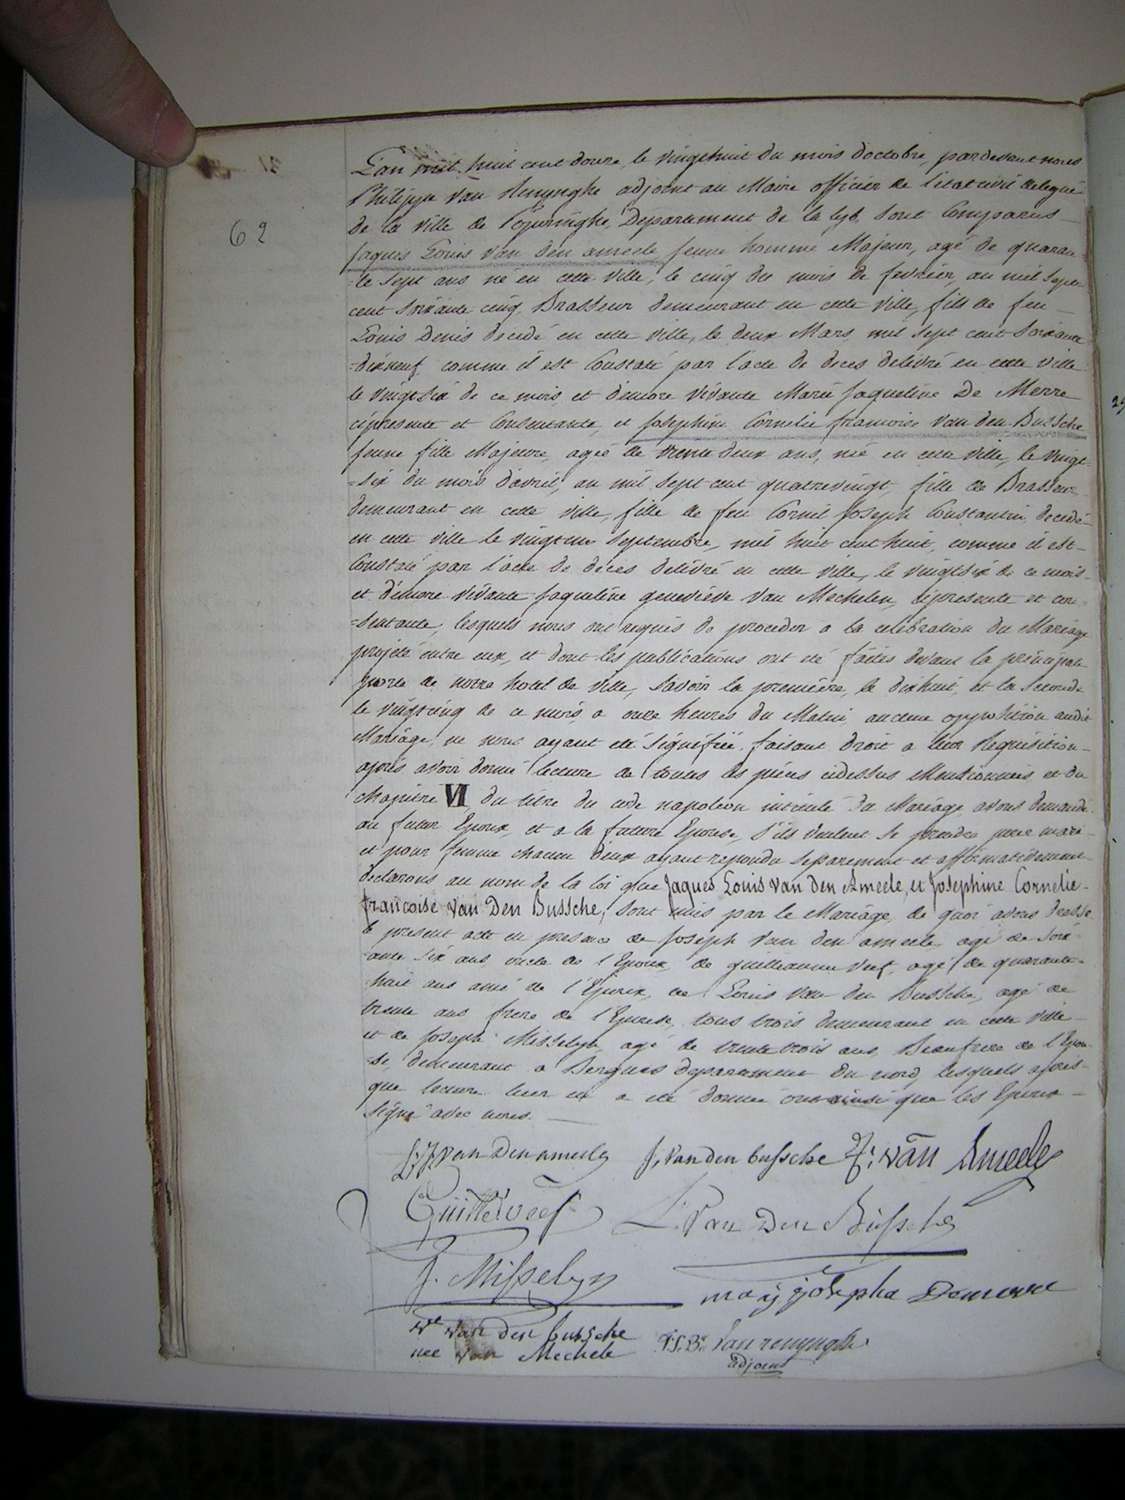 62
L'an mil huit cent douze, le vingthuit du mois d'octobre, pardevant nous
Philippe Van Renynghe adjoint au Maire officier de l'etat civil delegué
de la ville de Poperinghe, Departement de la Lys, sont Comparus
Jaques Louis Van den ameele jeune homme Majeur, agé de quaran
-te sept ans né en cette ville, le cinq du mois de fevrier, an mil sept
cent soixante cinq, Brasseur demeurant en cette ville, fils de feu
Louis Denis decedé en cette ville, le deux Mars, mil sept cent soixante
-dixneuf comme il est Constaté par l'acte de deces delivré en cette ville
le vingtsix de ce mois, et d'encore vivante Marie Jaqueline De Merre
cipresente et Consentante, et Josephine Cornelie francoise Van den Bussche
jeune fille Majeure, agée de trente deux ans, née en cette ville, le vingt
-six du mois d'avril, an mil sept cent quatrevingt, fille de Brasseur
demeurant en cette ville, fille de feu Cornil Joseph Constantin, decedé
en cette ville le vingtun Septembre, mil huit cent huit, comme il est
Constaté par l'acte de deces delivré en cette ville, le vingtsix de ce mois
et d'encore vivante Jaqueline genevieve Van Mechelen, cipresente et con
-sentante, lesquels nous ont requis de proceder a la celebration du Mariage
projeté entre eux, et dont les publications ont été faites devant la principale
porte de notre hotel de ville, Savoir la premiere, le dixhuit, et la seconde
le vingtcinq de ce mois, a onze heures du Matin, aucune opposition audit
Mariage, ne nous ayant eté signifiée, faisant droit a leur Requisition
après avoir donné lecture de toutes les pièces cidessus Mentionnées et du
chapitre VI, du titre du code napoleon intitulé du Mariage, avons demandé
au futur Epoux, et a la future Epouse, s'ils veulent se prendre pour mari
et pour femme chacun d'eux ayant repondu separement et affirmativement
declarons au nom de la loi que Jaques Louis Van Den Ameele, et Josephine Cornelie
francoise Van Den Bussche, sont unis par le Mariage, de quoi avons dressé
le present acte en presence de Joseph Van den ameele agé de soix
-ante six ans oncle de l'Epoux, de guilleaume Veef, agé de quarante
huit ans ami de l'Epoux, de Louis Van den Bussche, agé de
trente ans frere de l'Epouse, tous trois demeurant en cette ville
et de Joseph Misselyn agé de trente trois ans, Beaufrere de l'Epou
-se, demeurant a Bergues departement du nord, lesquels après
que lecture leur en a eté donnée ont ainsi que les Epoux
signé avec nous.
L: J. van Den ameele J, van den bussche J: van Ameele
Guille Veef L: Van Den Bussche
J. Misselyn marij josepha Demerre
We van den bussche
nee van Mechele
P.J.B. Van renynghe
adjoint